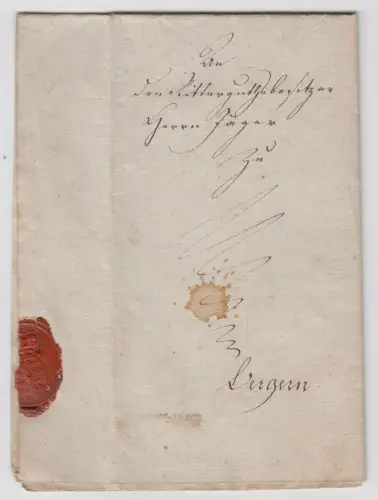 An
den Rittergutsbesitzer
Herrn Jäger
Zu